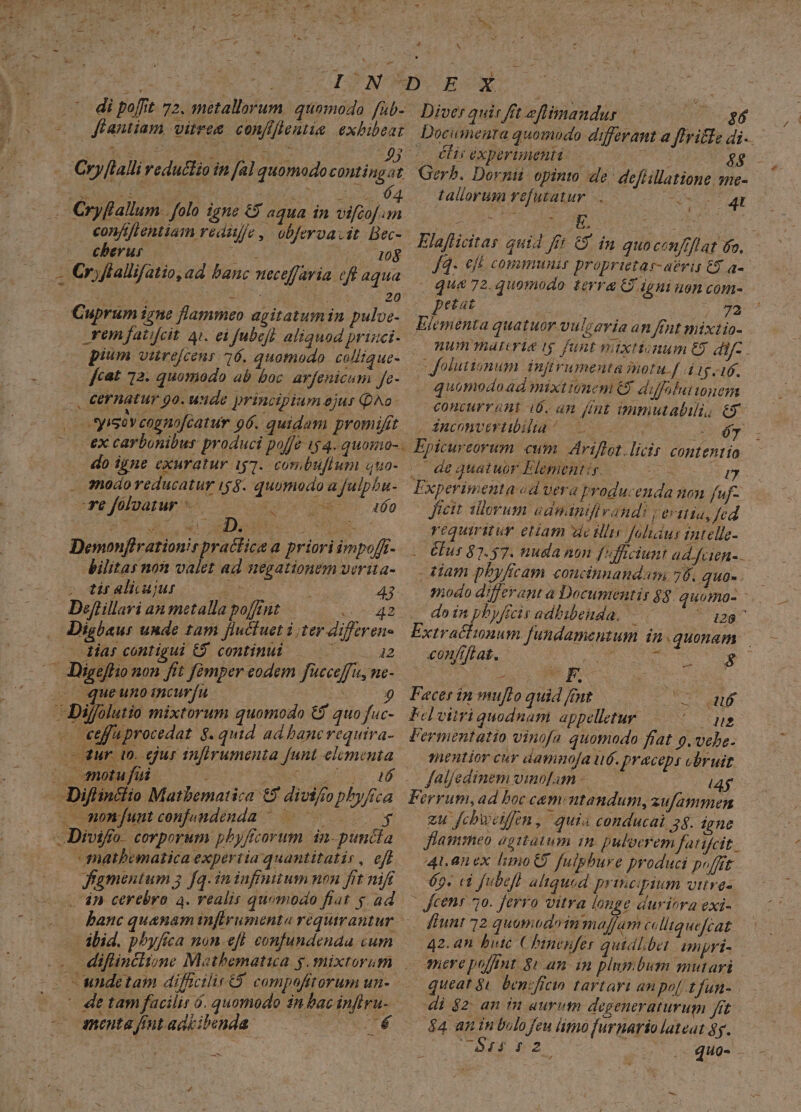 INDEX
di possit 72. metallorum quomodo sub-
stantiam vitreæ consistentiæ exhibeat
93
Crystalli reductio in sal quomodo contingat
64
Crystallum solo igne & aqua in viscosam
consistentiam redujse, observavit Bec-
cherus 108
Crystallisatio, ad hanc necessaria est aqua
20
Cuprum igne flammeo agitatum in pulve-
rem fatiscit 41. ei subest aliquod princi-
pium vitrescens 76. quomodo collique-
scat 72. quomodo ab hoc arsenicum se-
cernatur 90. unde principium ejus φλο
γιςὸν cognoscatur 96. quidam promisit
ex carbonibus produci posse 154. quomo-
do igne exuratur 157. combustum quo-
modo reducatur 158. quomodo a sulphu-
re solvatur 160
D.
Demonstrationis practicæ a priori impossi-
bilitas non valet ad negationem verita-
tis alicujus 43
Destillari an metalla possint 42
Digbæus unde tam fluctuet inter differen-
tias contigui & continui 12
Digestio non fit semper eodem successu, ne-
que uno incursu 9
Dissolutio mixtorum quomodo & quo suc-
cessu procedat 8. quid ad hanc requira-
tur 10. ejus instrumenta sunt elementa
motu sui 16
Distinctio Mathematica & divisio physica
non sunt confundenda 5
Divisio corporum physicorum in puncta
mathematica expertia quantitatis, est
figmentum 3 sq. in infinitum non fit nisi
in cerebro 4. realis quomodo fiat 5. ad
hanc quænam instrumenta requirantur
ibid. physica non est confundenda cum
distinctione Mathematica 5. mixtorum
unde tam difficilis & compositorum un-
de tam facilis 6. quomodo in hac instru-
menta sint adhibenda 6
Dives quis sit æstimandus 86
Documenta quomodo differant a stricte di-
ctis experimentis 88
Gerh. Dornii opinio de destillatione me-
tallorum refutatur 41
E.
Elasticitas quid sit & in quo consistat 60.
sq. est communis proprietas aëris & a-
quæ 72. quomodo terræ & igni non com-
petat 72
Elementa quatuor vulgaria an sint mixtio-
num materiæ 15 sunt mixtionum & dis-
solutionum instrumenta motu s 115. 16.
quomodo ad mixtionem & dissolutionem
concurrant 16. an sint immutabilia &
inconvertibilia 67
Epicureorum cum Aristotelicis contentio
de quatuor Elementis 17
Experimenta ad vera producenda non suf-
ficit illorum administrandi peritia, sed
requiritur etiam de illis solidus intelle-
ctus 87. 57. nuda non sufficiunt ad scien-
tiam physicam concinnandam 76. quo-
modo differant a Documentis 88 quomo-
do in physicis adhibenda. 120
Extractionum fundamentum in quonam
consistat. 8
F.
Fæces in musto quid sint 116
Fel vitri quodnam appelletur 112
Fermentatio vinosa quomodo fiat 9. vehe-
mentior cur damnosa 116. præceps obruit
salsedinem vinosam 145
Ferrum, ad hoc cæmentandum, zusammen
zu schweissen, quid conducat 38. igne
flammeo agitatum in pulverem fatiscit
41. an ex limo & sulphure produci possit
69. ei subest aliquod principium vitre-
scens 70. ferro vitra longe duriora exi-
stunt 72 quomodo in massam colliquescat
42. an huic Chinenses quidlibet impri-
mere possint 81 an in plumbum mutari
queat 81 beneficio tartari an possit fun-
di 82 an in aurum degeneraturum sit
84 an in bolo seu limo furnario lateat 85.
Sss s 2 quo-